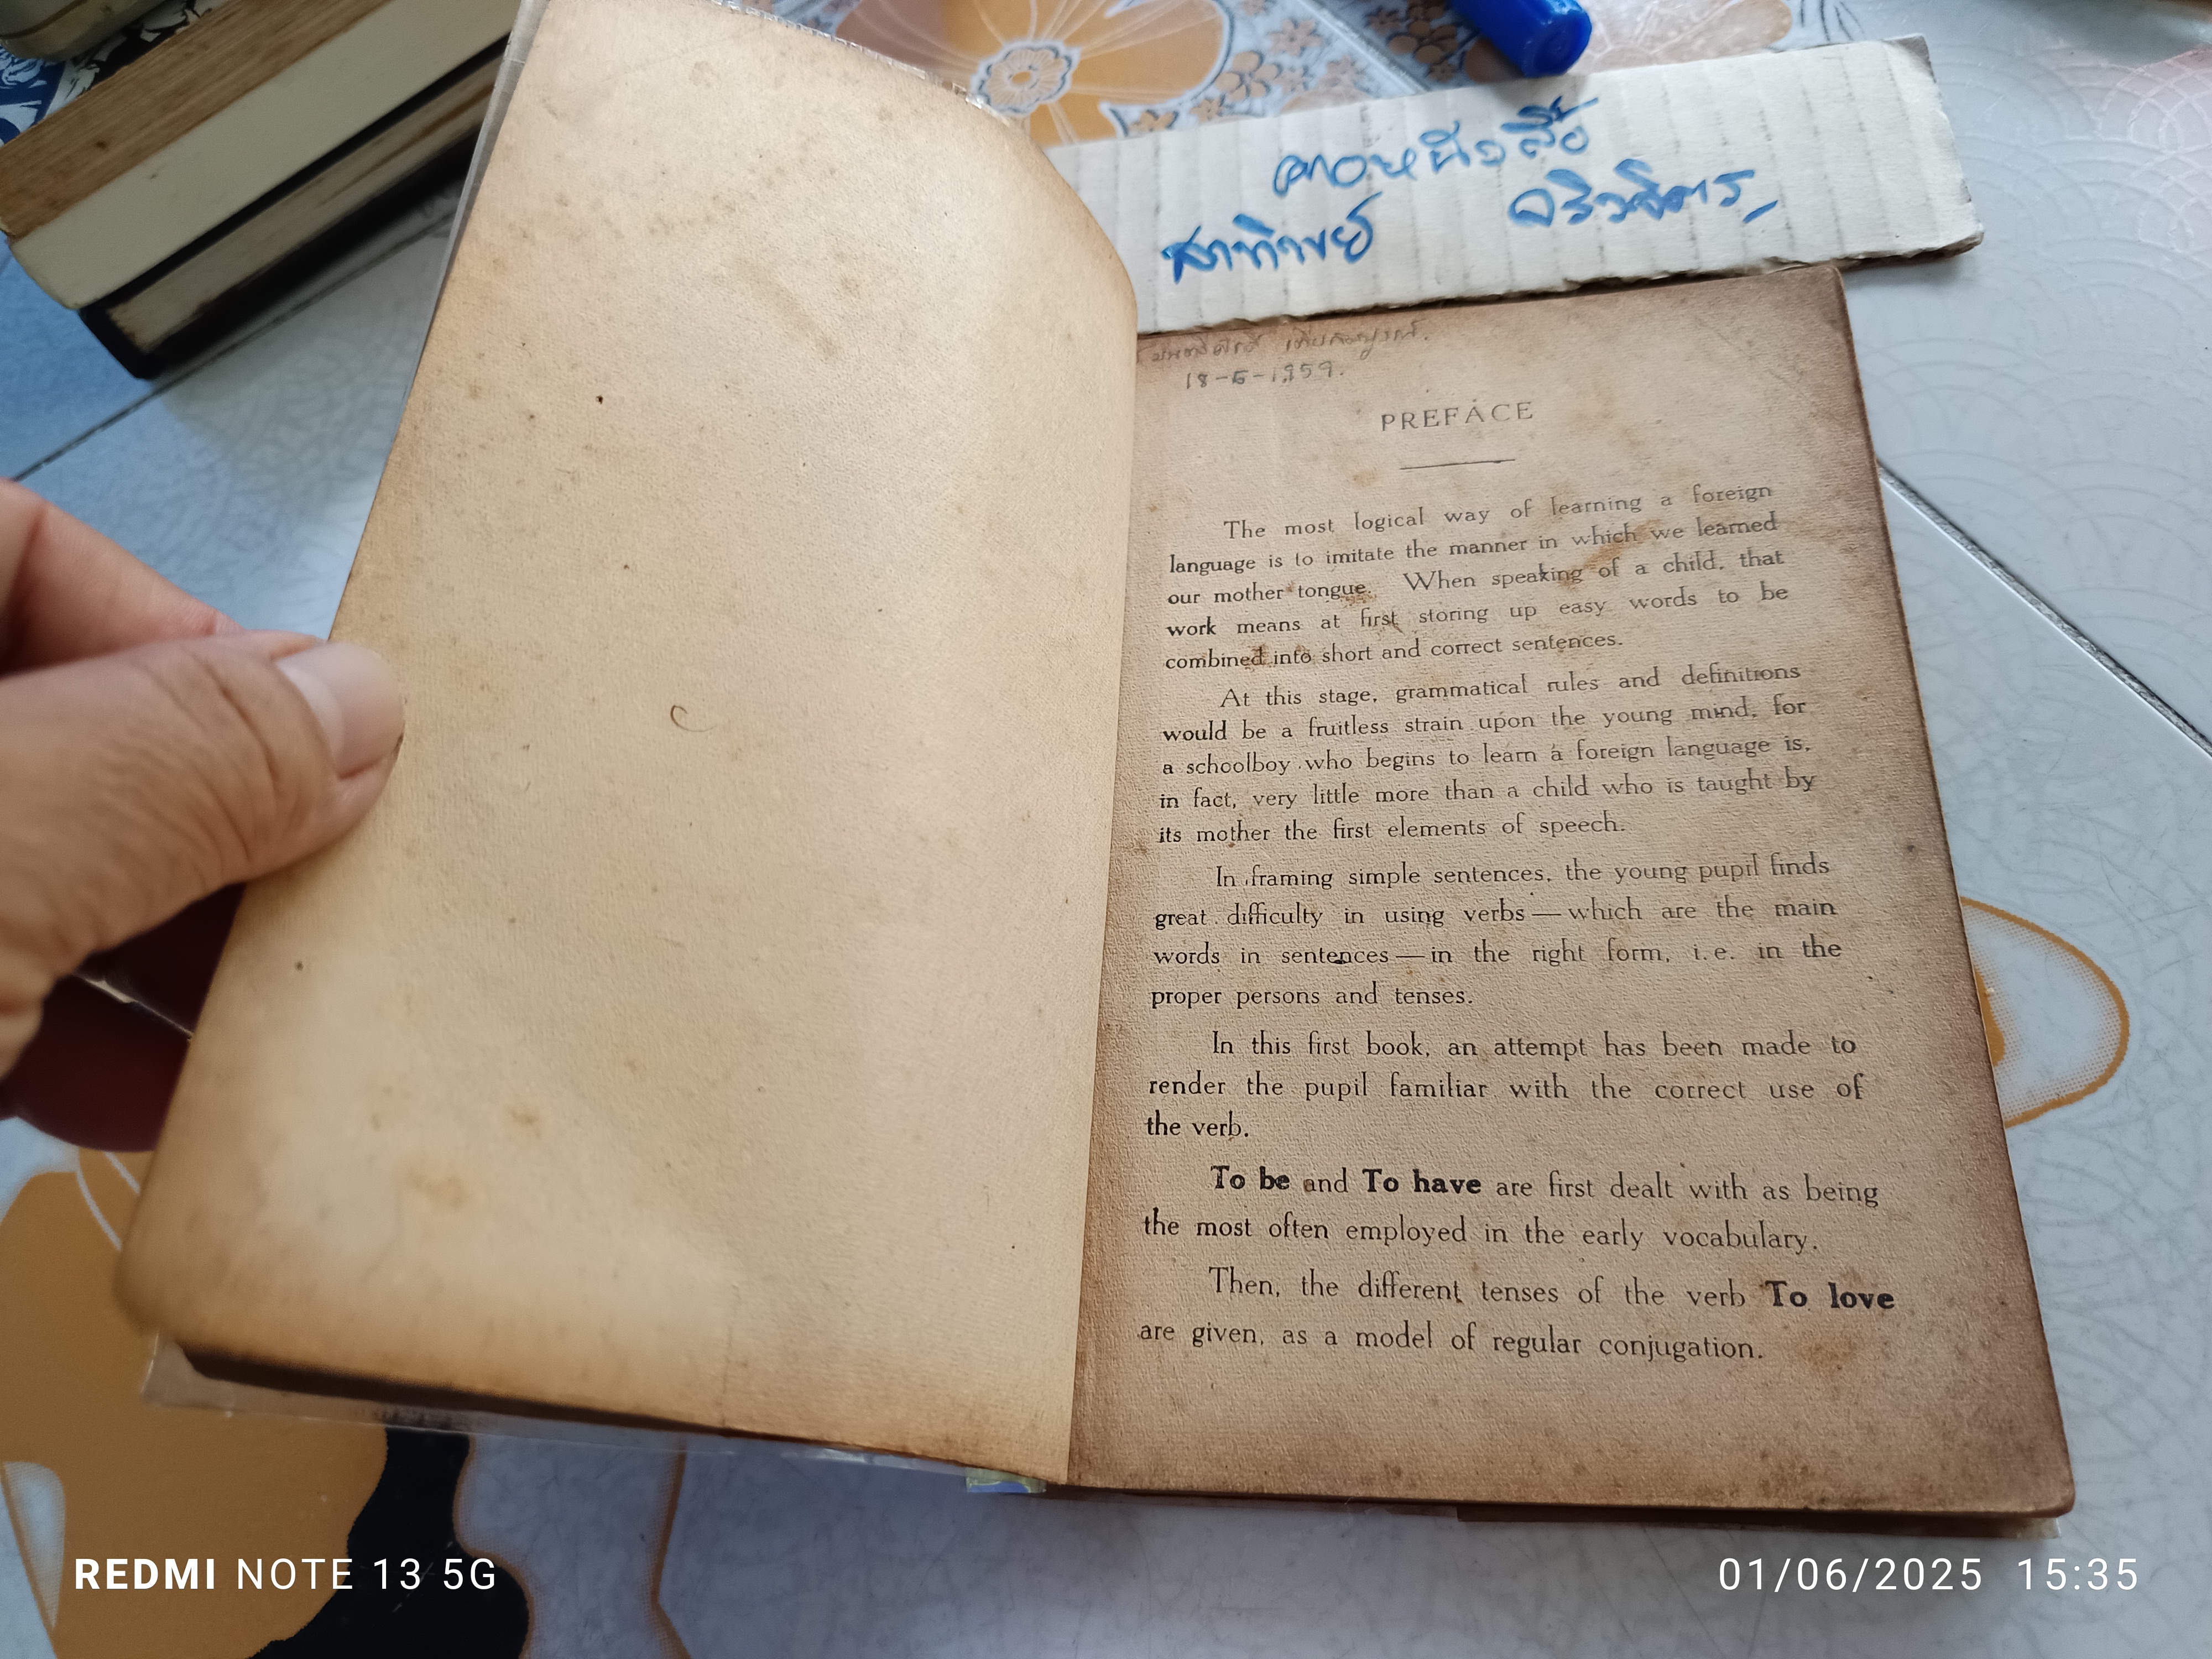 สาทิพย์
18-6-1959.
PREFACE
The most logical way of learning a foreign
language is to imitate the manner in which we learned
our mother tongue. When speaking of a child, that
work means at first storing up easy words to be
combined into short and correct sentences.
At this stage, grammatical rules and definitions
would be a fruitless strain upon the young mind, for
a schoolboy who begins to learn a foreign language is,
in fact, very little more than a child who is taught by
its mother the first elements of speech.
In framing simple sentences, the young pupil finds
great difficulty in using verbs — which are the main
words in sentences — in the right form, i. e. in the
proper persons and tenses.
In this first book, an attempt has been made to
render the pupil familiar with the correct use of
the verb.
To be and To have are first dealt with as being
the most often employed in the early vocabulary.
Then, the different tenses of the verb To love
are given, as a model of regular conjugation.
REDMI NOTE 13 5G
01/06/2025 15:35